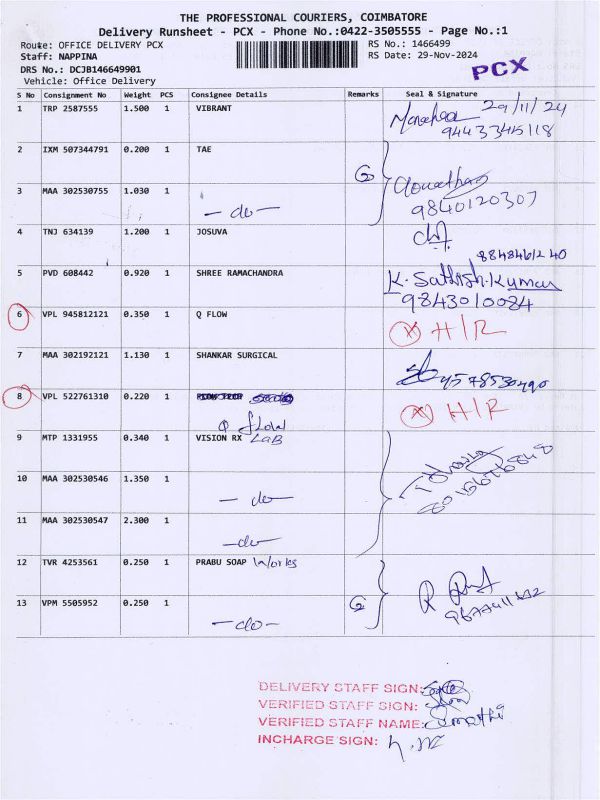 THE PROFESSIONAL COURIERS, COIMBATORE
Delivery Runsheet - PCX - Phone No.:0422-3505555 - Page No.:1
Route: OFFICE DELIVERY PCX
RS No.: 1466499
Staff: NAPPINA
RS Date: 29-Nov-2024
DRS No.: DCJB146649901
Vehicle: Office Delivery
PCX
S No Consignment No Weight PCS Consignee Details Remarks Seal & Signature
1 TRP 2587555 1.500 1 VIBRANT 29/11/24
9443345118
2 IXM 507344791 0.200 1 TAE
3 MAA 302530755 1.030 1
- do -
9840120307
4 TNJ 634139 1.200 1 JOSUVA
8848461240
5 PVD 608442 0.920 1 SHREE RAMACHANDRA K. Sathish.Kumar
9843010084
6 VPL 945812121 0.350 1 Q FLOW
H/R
7 MAA 302192121 1.130 1 SHANKAR SURGICAL
9578530490
8 VPL 522761310 0.220 1
H/R
Q flow
9 MTP 1331955 0.340 1 VISION RX LaB
10 MAA 302530546 1.350 1
- do -
11 MAA 302530547 2.300 1
- do -
12 TVR 4253561 0.250 1 PRABU SOAP Works
13 VPM 5505952 0.250 1
- do -
DELIVERY STAFF SIGN:
VERIFIED STAFF SIGN:
VERIFIED STAFF NAME: Sumathi
INCHARGE SIGN: